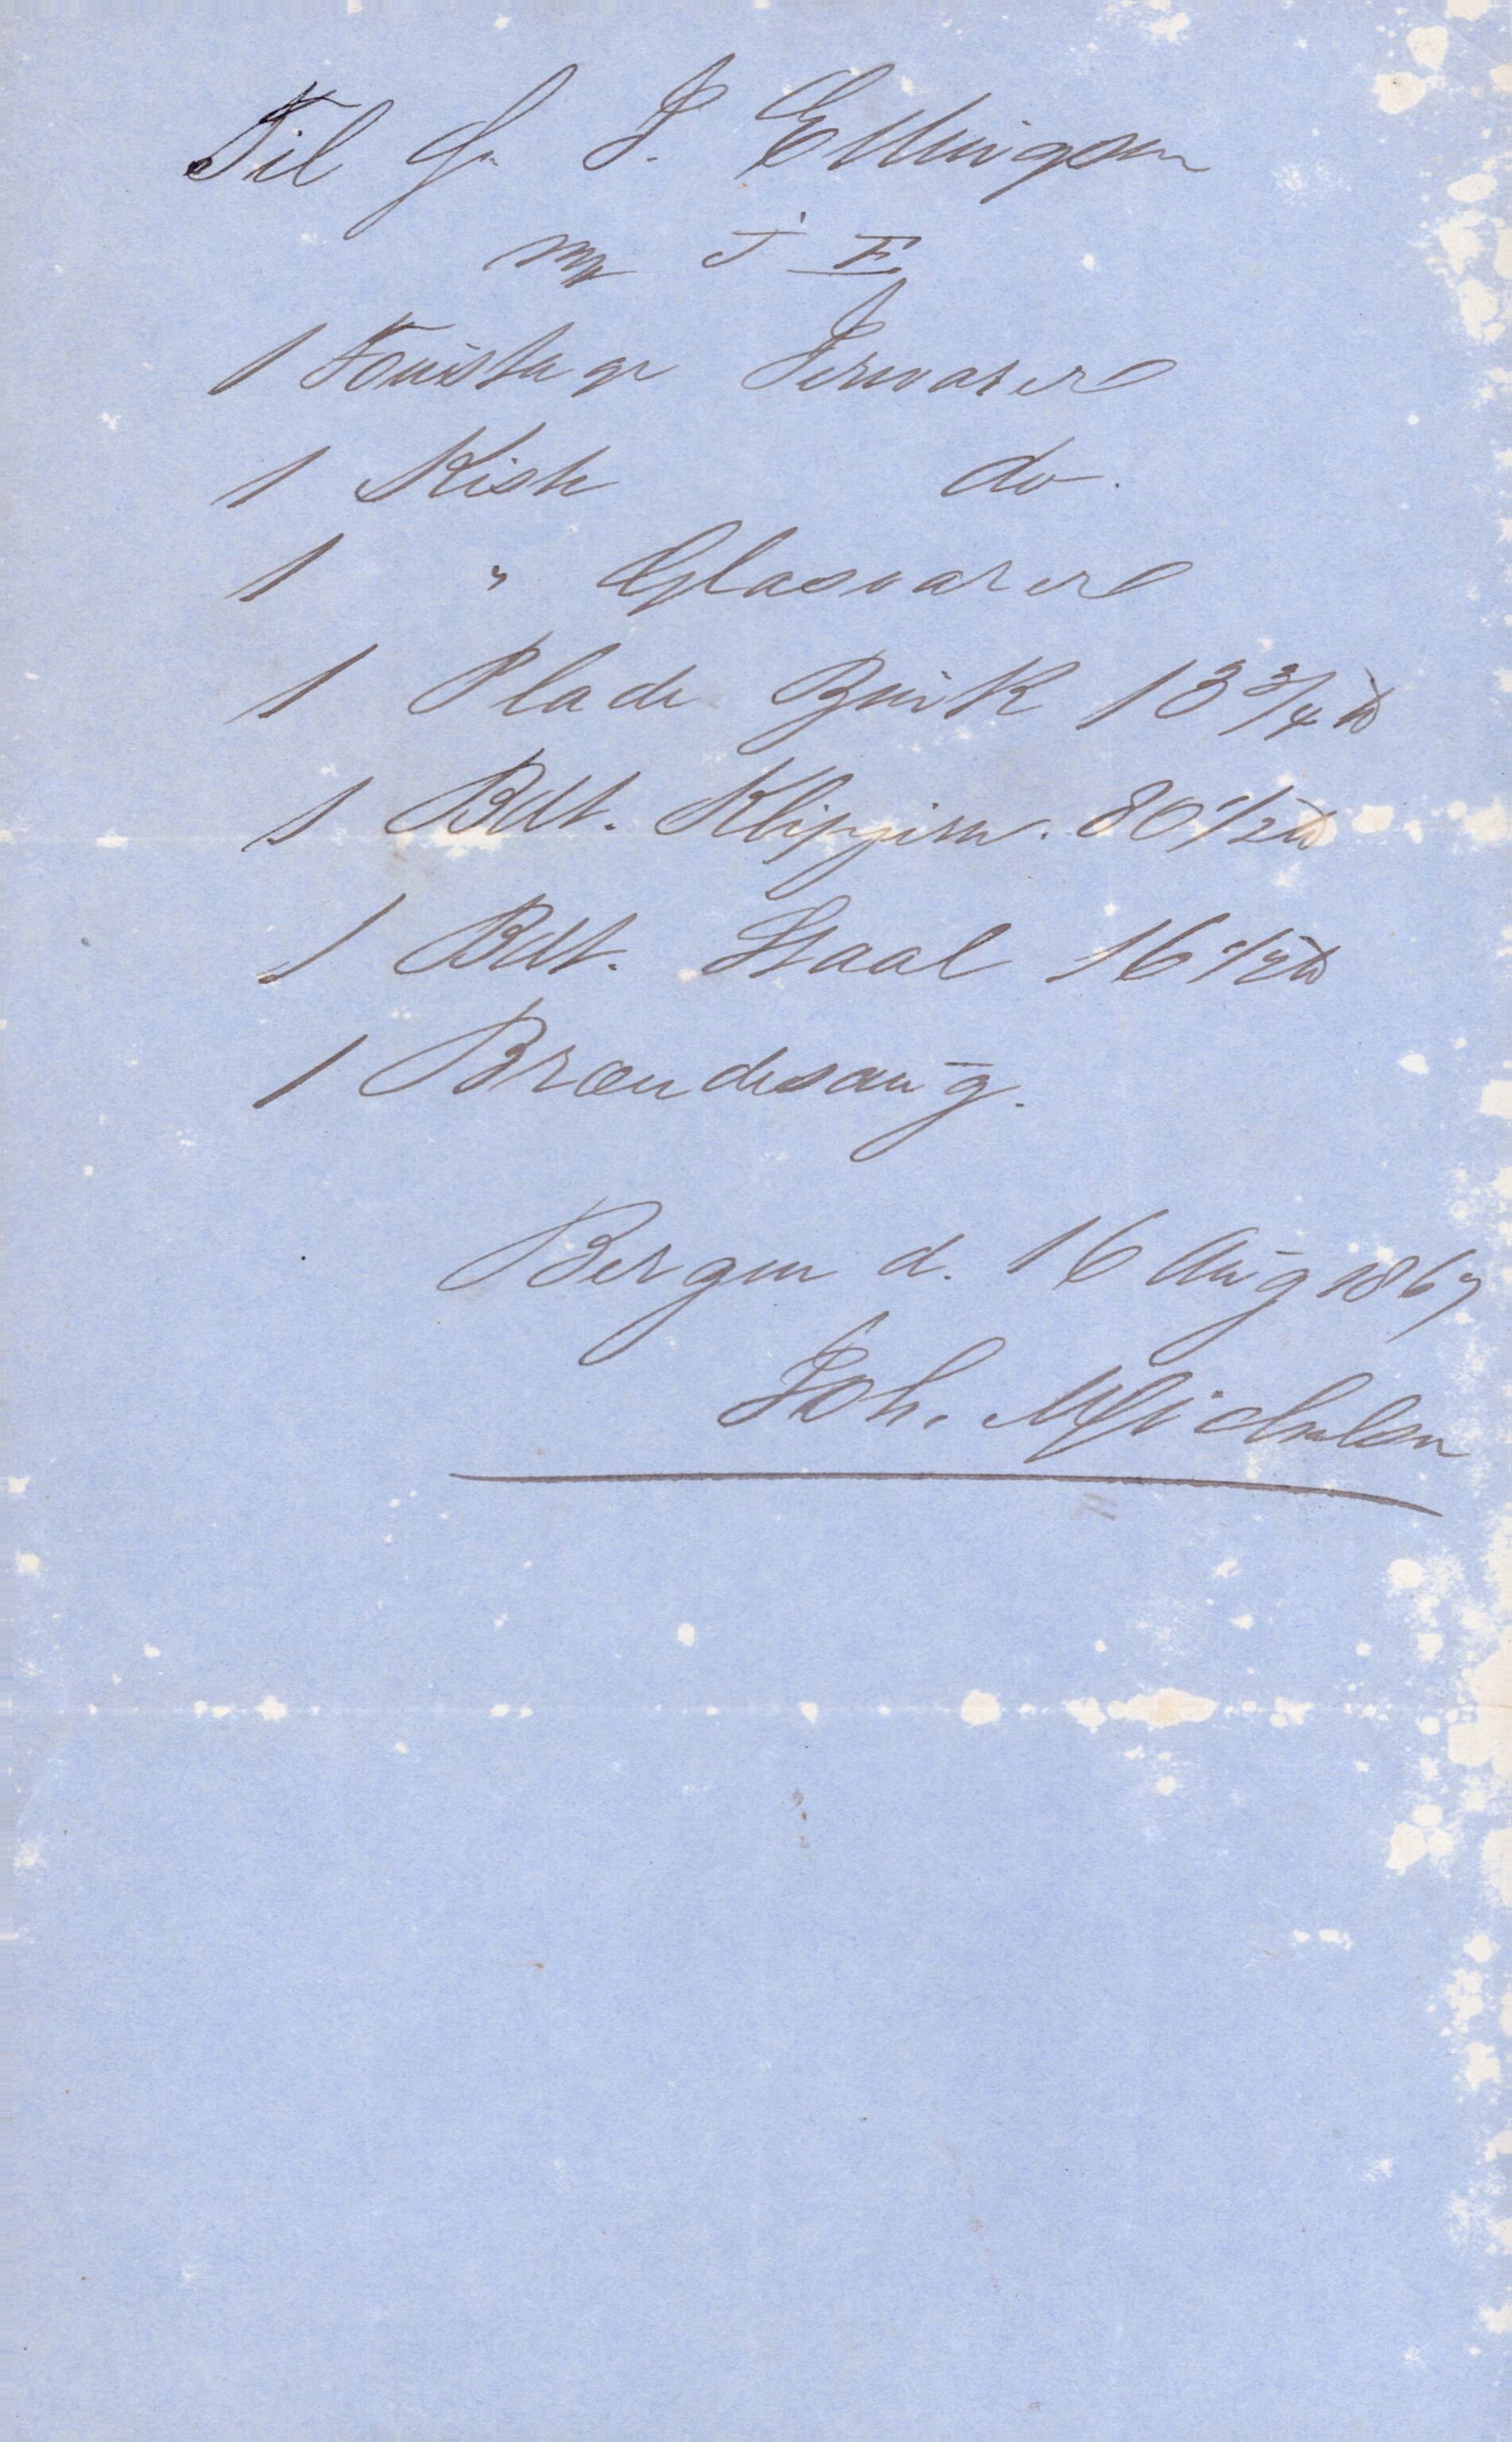 Til Hr J. Ellingsen
Mk J E.
1 Foustage Jernvarer
1 Kiste do.
1 " Glasvarer
1 Plade Zink 13 3/4 ℔
1 Bdt. Klipjern. 80 1/2 ℔
1 Bdt. Staal 16 1/2 ℔
1 Brændesaug.
Bergen d. 16 Aug 1867
Joh. Michelsen